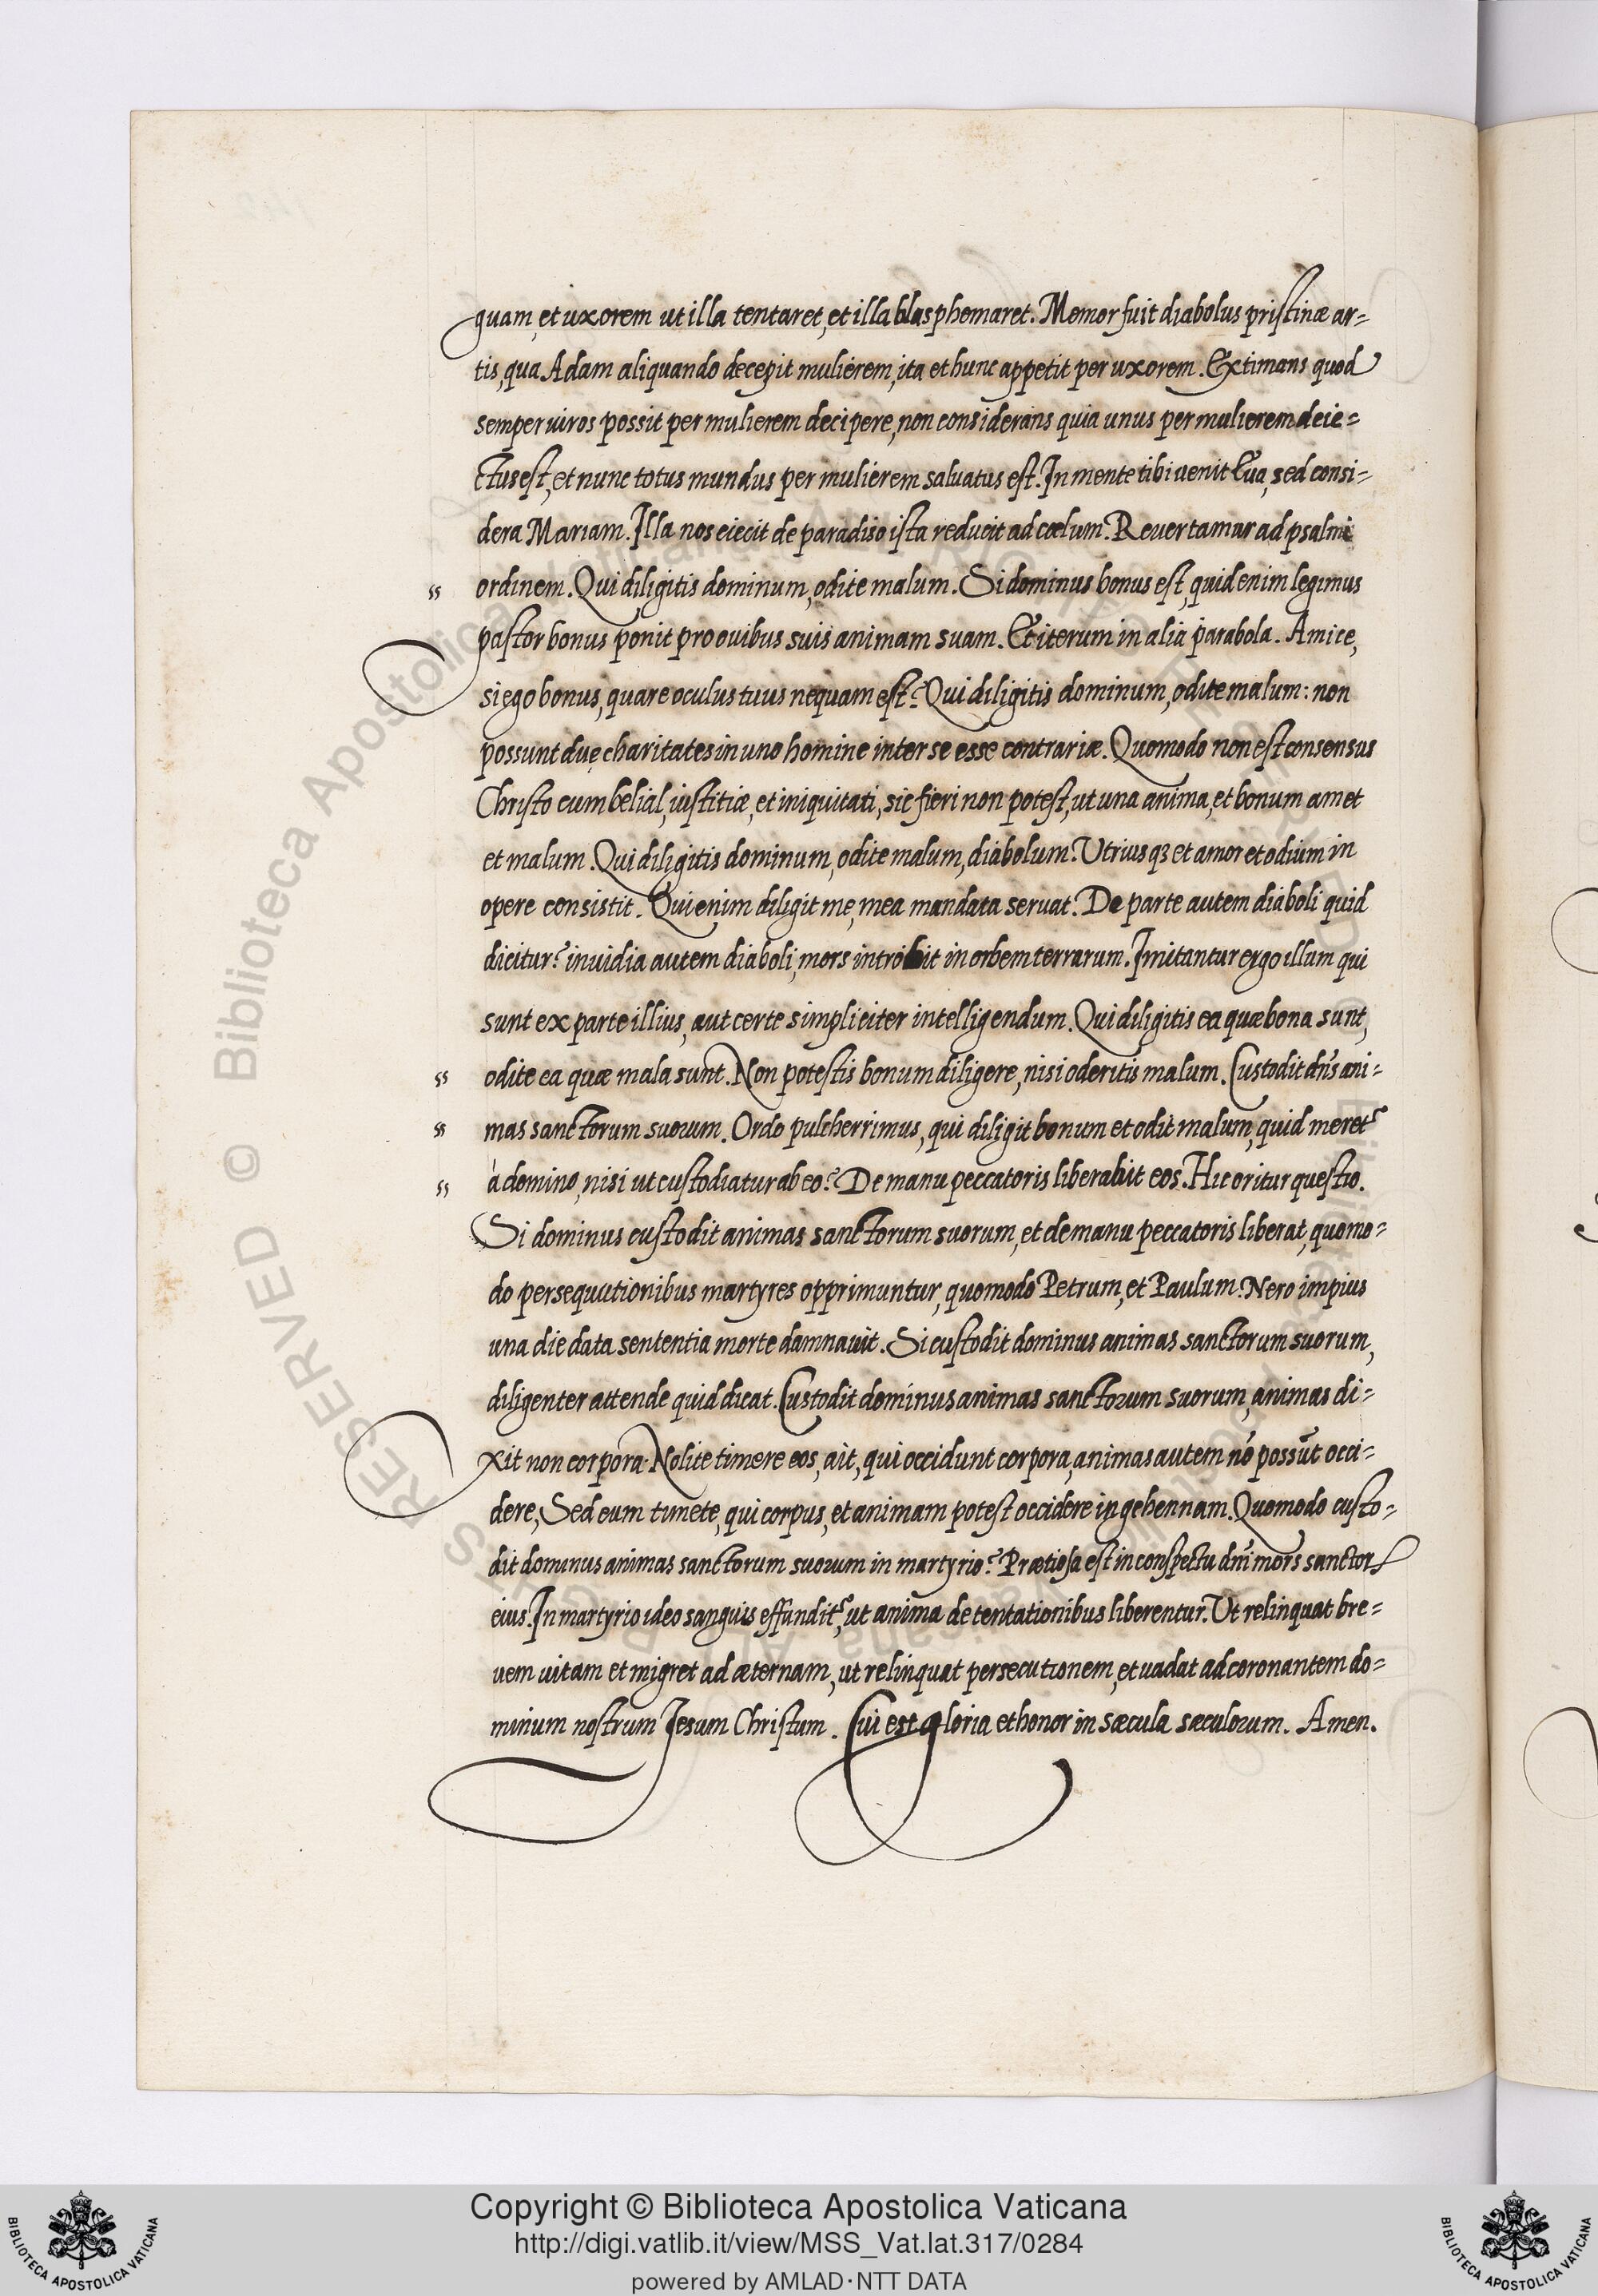 guam, et uxorem ut illa tentaret, et illa blasphemaret. Memor fuit diabolus pristinæ ar=
tis, qua Adam aliquando decepit mulierem, ita et hunc appetit per uxorem. Extimans quod
semper uiros possit per mulierem decipere, non considerans quia unus per mulierem deie=
ctus est, et nunc totus mundus per mulierem saluatus est. In mente tibi uenit Eua, sed consi=
dera Mariam. Illa nos eiecit de paradiso ista reducit ad cœlum. Reuertamur ad psalmi
ordinem. Qui diligitis dominum, odite malum. Si dominus bonus est, quid enim legimus
pastor bonus ponit pro ouibus suis animam suam. Et iterum in alia parabola. Amice,
si ego bonus, quare oculus tuus nequam est? Qui diligitis dominum, odite malum: non
possunt duę charitates in uno homine inter se esse contrariæ. Quomodo non est consensus
Christo cum belial, iustitiæ, et iniquitati, sic fieri non potest, ut una anima, et bonum amet
et malum. Qui diligitis dominum, odite malum, diabolum. Utriusqꝫ et amor et odium in
opere consistit. Qui enim diligit me, mea mandata seruat. De parte autem diaboli quid
dicitur? inuidia autem diaboli, mors introiuit in orbem terrarum. Imitantur ergo illum qui
sunt ex parte illius, aut certe simpliciter intelligendum. Qui diligitis ea quæ bona sunt,
odite ea quæ mala sunt. Non potestis bonum diligere, nisi oderitis malum. Custodit dñs ani=
mas sanctorum suorum. Ordo pulcherrimus, qui diligit bonum et odit malum, quid meret᷑
à domino, nisi ut custodiatur ab eo? De manu peccatoris liberabit eos. Hic oritur questio.
Si dominus custodit animas sanctorum suorum, et de manu peccatoris liberat, quomo=
do persequutionibus martyres opprimuntur, quomodo Petrum, et Paulum. Nero impius
una die data sententia morte damnauit. Si custodit dominus animas sanctorum suorum,
diligenter attende quid dicat. Custodit dominus animas sanctorum suorum, animas di=
xit non corpora. Nolite timere eos, ait, qui occidunt corpora, animas autem nõ possũt occi=
dere, Sed eum timete, qui corpus, et animam potest occidere in gehennam. Quomodo custo=
dit dominus animas sanctorum suorum in martyrio? Prætiosa est in conspectu dñi mors sanctoꝝ
eius. In martyrio ideo sanguis effundit᷑, ut anima de tentationibus liberentur. Ut relinquat bre=
uem uitam et migret ad æternam, ut relinquat persecutionem, et uadat ad coronantem do=
minum nostrum Jesum Christum. Cui est gloria et honor in sæcula sæculorum. Amen.
RESERVED © Biblioteca Apostolica Vaticana
Copyright © Biblioteca Apostolica Vaticana
http://digi.vatlib.it/view/MSS_Vat.lat.317/0284
powered by AMLAD·NTT DATA
BIBLIOTECA APOSTOLICA VATICANA
BIBLIOTECA APOSTOLICA VATICANA